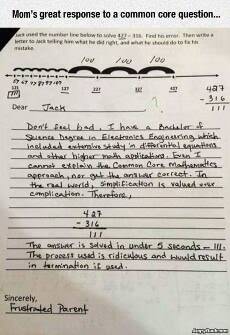 Mom's great response to a common core question...
Jack used the number line below to solve 427 - 316. Find his error. Then write
a letter to Jack telling him what he did right, and what he should do to fix his
mistake.
100 100 100
121 127 227 327 427
111
427
- 316
111
Dear Jack
Don't feel bad. I have a Bachelor of
Science Degree in Electronics Engineering which
included extensive study in differential equations
and other higher math applications. Even I
cannot explain the Common Core mathematics
approach, nor get the answer correct. In
the real world, simplification is valued over
complication. Therefore,
427
- 316
111
The answer is solved in under 5 seconds — 111.
The process used is ridiculous and would result
in termination if used.
Sincerely,
Frustrated Parent